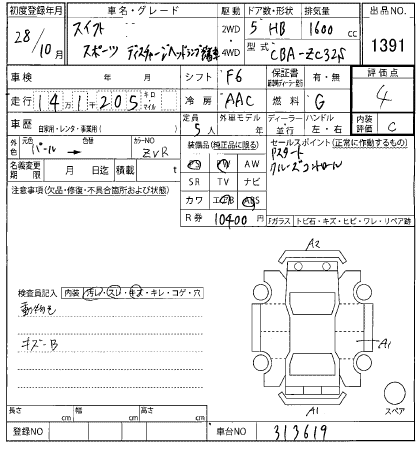 初度登録年月 車名・グレード 駆動 ドア数・形状 排気量 出品NO.
28/10月 スイフト 2WD 4WD 5 HB 1600 cc 1391
スポーツ 型式 CBA-ZC32S
車検 年 月 シフト F6 保証書 有・無 評価点 4
走行 14万1千205 キロ マイル 冷房 AAC 燃料 G
車歴 自家用・レンタ・事業用( ) 定員 5人 外車モデル 年 ディーラー 並行 ハンドル 左・右 内装評価 C
外色 元色 パール → 色替 カラーNO ZVR 装備品(純正品に限る) セールスポイント(正常に作動するもの)
PS PW AW Pスタート
クルーズコントロール
名義変更期限 月 日迄 積載 t SR TV ナビ
注意事項(欠品・修復・不具合箇所および状態) カワ エアB ABS
R券 10400円
Fガラス トビ石・キズ・ヒビ・ワレ・リペア跡
A2
検査員記入 内装 汚レ・スレ・キズ・キレ・コゲ・穴
キズ-B
A1
A1
スペア
長さ cm 幅 cm 高さ cm
登録NO 車台NO 313619